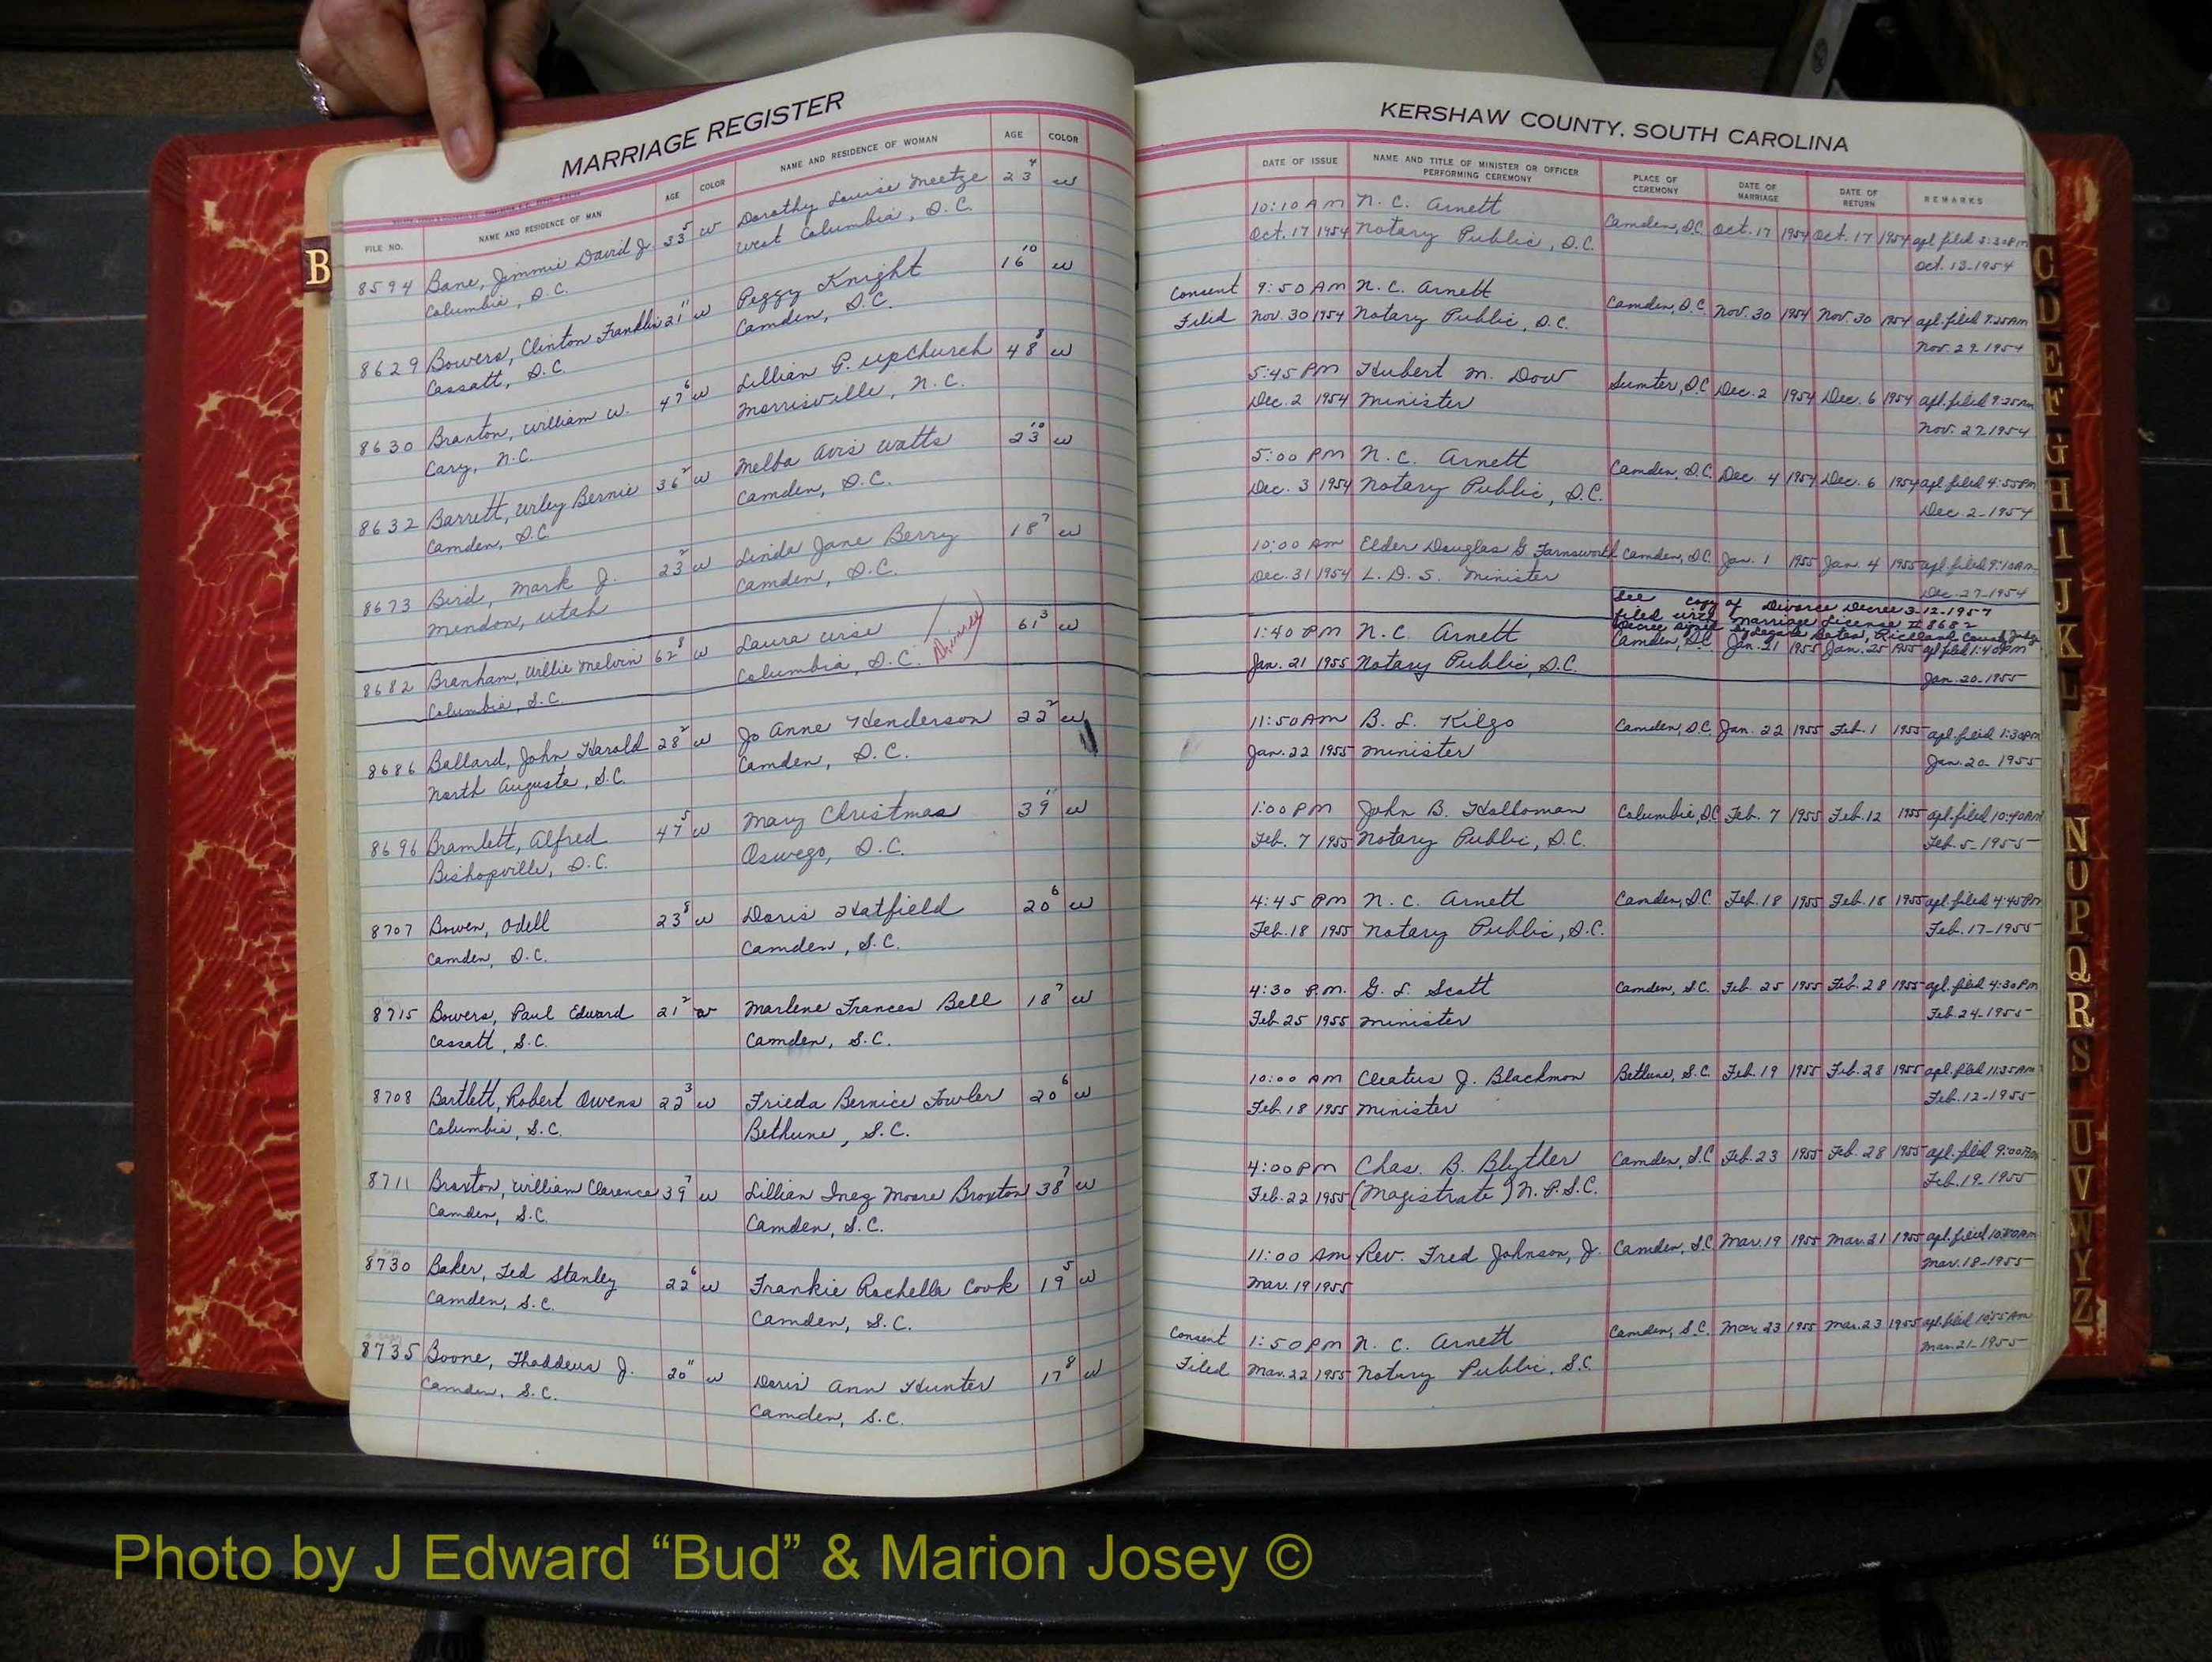 MARRIAGE REGISTER
FILE NO. NAME AND RESIDENCE OF MAN AGE COLOR NAME AND RESIDENCE OF WOMAN AGE COLOR
B
8594 Bane, Jimmie David Jr. 33 5 w Dorothy Louise Meetze 23 4 w
Columbia, S.C. West Columbia, S.C.
8629 Bowers, Clinton Franklin 21 11 w Peggy Knight 16 10 w
Cassatt, S.C. Camden, S.C.
8630 Braxton, William W. 47 6 w Lillian P. Upchurch 48 8 w
Cary, N.C. Morrisville, N.C.
8632 Barrett, Urley Bernie 36 2 w Melba Avis Watts 23 10 w
Camden, S.C. Camden, S.C.
8673 Bird, Mark J. 23 2 w Linda Jane Berry 18 7 w
Mendon, Utah Camden, S.C.
8682 Branham, Willie Melvin 62 8 w Laura Wise 61 3 w
Columbia, S.C. Columbia, S.C. Divorced
8686 Ballard, John Harold 28 2 w Jo Anne Henderson 22 2 w
North Augusta, S.C. Camden, S.C.
8696 Bramlett, Alfred 47 5 w Mary Christmas 39 11 w
Bishopville, S.C. Oswego, S.C.
8707 Bowen, Odell 23 8 w Doris Hatfield 20 6 w
Camden, S.C. Camden, S.C.
8715 Bowers, Paul Edward 21 2 w Marlene Frances Bell 18 7 w
Cassatt, S.C. Camden, S.C.
8708 Bartlett, Robert Owens 22 3 w Frieda Bernice Fowler 20 6 w
Columbia, S.C. Bethune, S.C.
8711 Braxton, William Clarence 39 7 w Lillian Inez Moore Braxton 38 7 w
Camden, S.C. Camden, S.C.
8730 Baker, Ted Stanley 22 6 w Frankie Rochelle Cook 19 5 w
Camden, S.C. Camden, S.C.
8735 Boone, Thaddeus J. 20 11 w Doris Ann Hunter 17 8 w
Camden, S.C. Camden, S.C.
KERSHAW COUNTY, SOUTH CAROLINA
DATE OF ISSUE NAME AND TITLE OF MINISTER OR OFFICER PERFORMING CEREMONY PLACE OF CEREMONY DATE OF MARRIAGE DATE OF RETURN REMARKS
10:10 AM N. C. Arnett Camden, S.C. Oct. 17 1954 Oct. 17 1954 apl. filed 3:30 PM
Oct. 17 1954 Notary Public, S.C. Oct. 13-1954
Consent 9:50 AM N. C. Arnett Camden, S.C. Nov. 30 1954 Nov. 30 1954 apl. filed 9:25 AM
Filed Nov. 30 1954 Notary Public, S.C. Nov. 29-1954
5:45 PM Hubert M. Dow Sumter, S.C. Dec. 2 1954 Dec. 6 1954 apl. filed 9:35 AM
Dec. 2 1954 Minister Nov. 27 1954
5:00 PM N. C. Arnett Camden, S.C. Dec. 4 1954 Dec. 6 1954 apl. filed 4:55 PM
Dec. 3 1954 Notary Public, S.C. Dec. 2-1954
10:00 AM Elder Douglas G Farnsworth Camden, S.C. Jan. 1 1955 Jan. 4 1955 apl. filed 9:10 AM
Dec. 31 1954 L. D. S. Minister Dec. 27-1954
See copy of Divorce Decree 3-12-1957
filed with Marriage License # 8682
Decree signed by Legare Bates, Richland County Judge
1:40 PM N. C. Arnett Camden, S.C. Jan. 21 1955 Jan. 25 1955 apl filed 1:40 PM
Jan. 21 1955 Notary Public, S.C. Jan. 20-1955
11:50 AM B. L. Kilgo Camden, S.C. Jan. 22 1955 Feb. 1 1955 apl. filed 1:30 PM
Jan. 22 1955 Minister Jan. 20-1955
1:00 PM John B. Holloman Columbia, S.C. Feb. 7 1955 Feb. 12 1955 apl. filed 10:40 AM
Feb. 7 1955 Notary Public, S.C. Feb. 5-1955
4:45 PM N. C. Arnett Camden, S.C. Feb. 18 1955 Feb. 18 1955 apl. filed 4:45 PM
Feb. 18 1955 Notary Public, S.C. Feb. 17-1955
4:30 P.M. G. L. Scott Camden, S.C. Feb. 25 1955 Feb. 28 1955 apl. filed 4:30 PM
Feb 25 1955 Minister Feb. 24-1955
10:00 AM Cleatus J. Blackmon Bethune, S.C. Feb. 19 1955 Feb. 28 1955 apl. filed 11:35 AM
Feb 18 1955 Minister Feb. 12-1955
4:00 PM Chas. B. Blyther Camden, S.C Feb. 23 1955 Feb. 28 1955 apl. filed 9:00 AM
Feb. 22 1955 (Magistrate) N.P.S.C. Feb. 19-1955
11:00 AM Rev. Fred Johnson, Jr. Camden, S.C Mar. 19 1955 Mar. 21 1955 apl. filed 10:00 AM
Mar. 19 1955 Mar. 18-1955
Consent 1:50 PM N. C. Arnett Camden, S.C. Mar. 23 1955 Mar. 23 1955 apl. filed 10:55 AM
Filed Mar. 22 1955 Notary Public, S.C. Mar. 21-1955
C
D
E
F
G
H
I
J
K
L
N
O
P
Q
R
S
U
V
W
Y
Z
Photo by J Edward “Bud” & Marion Josey ©